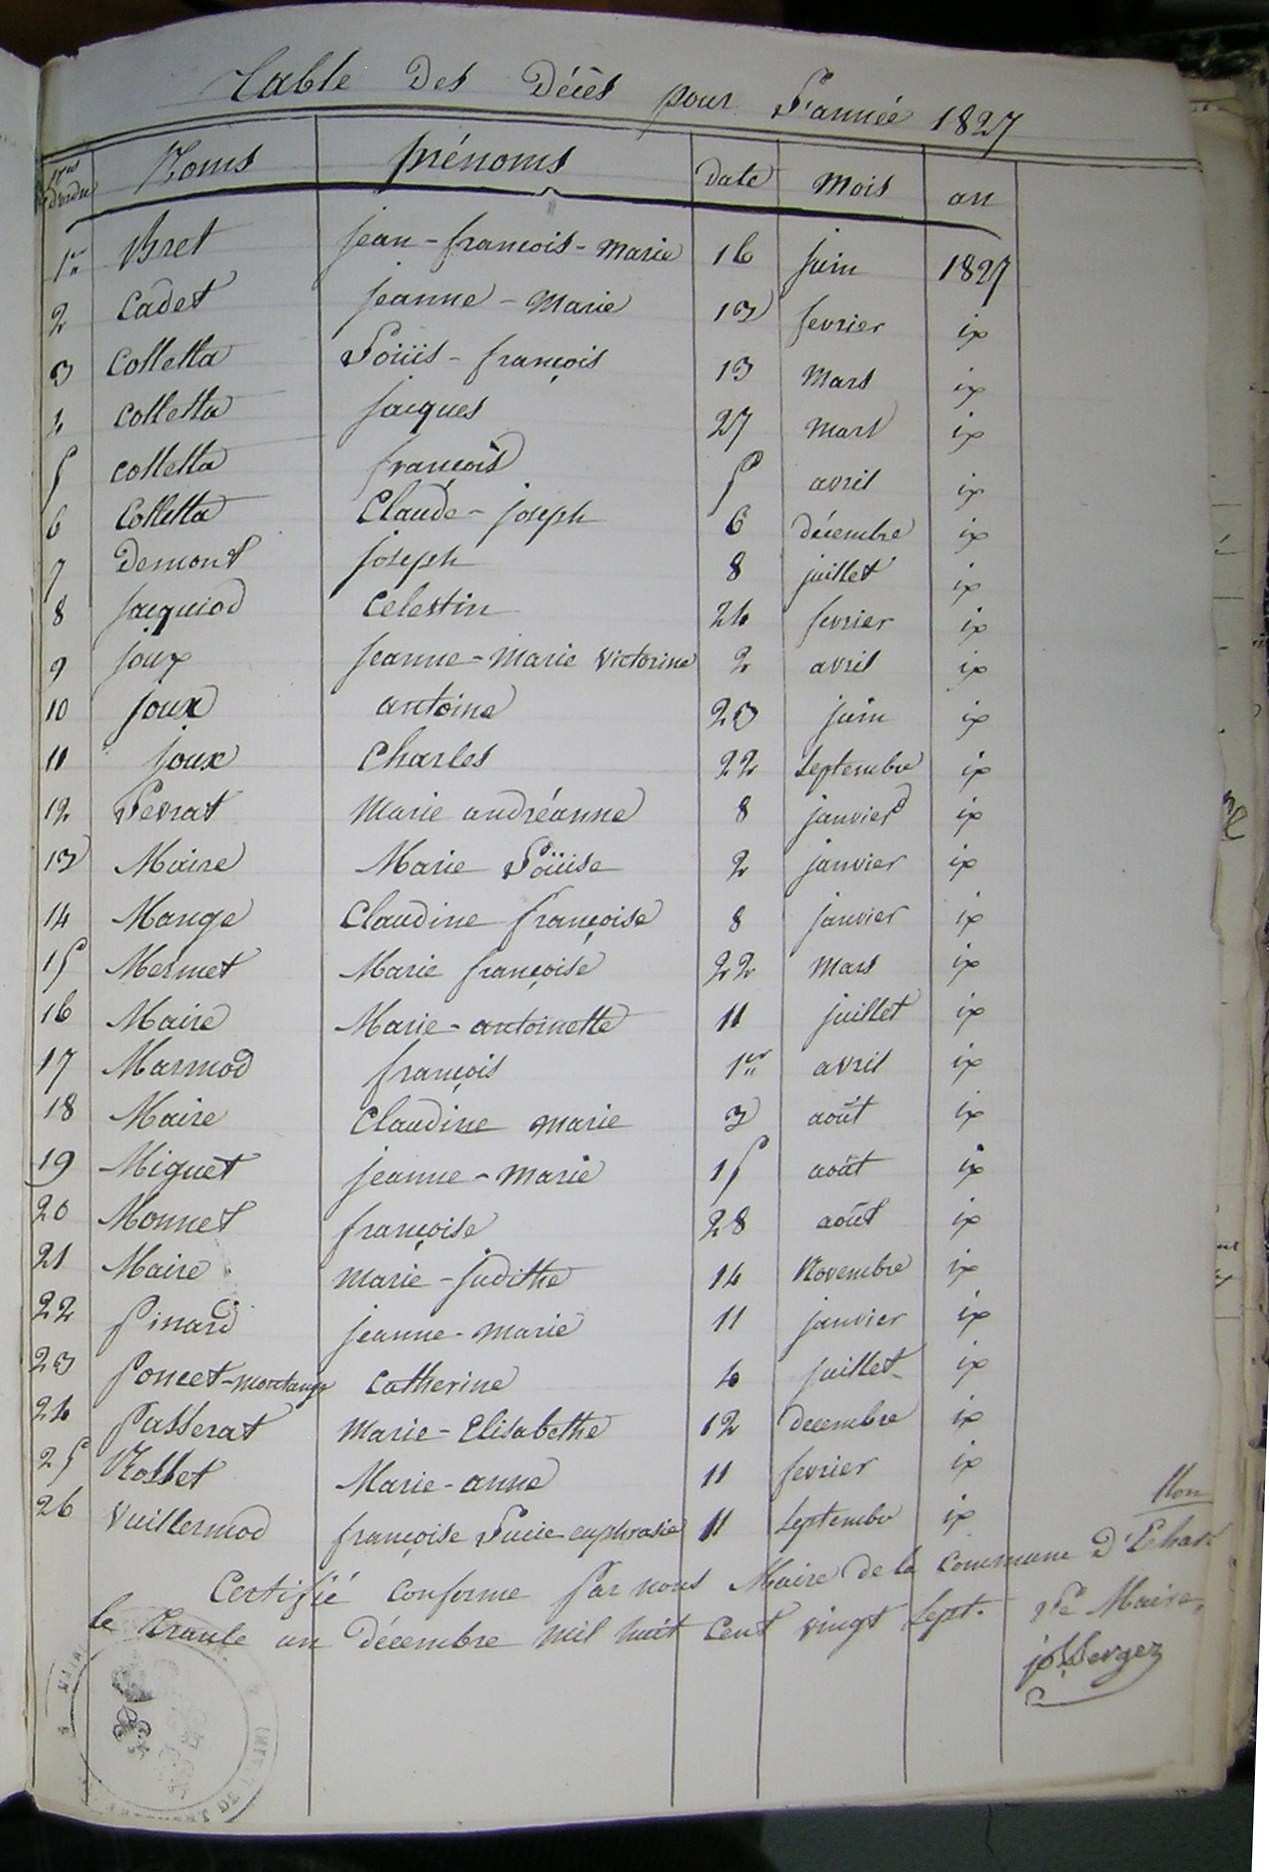 Table Des Décès pour L'année 1827
Nos d'ordre Noms prénoms date Mois an
1er Bret jean-francois-Marie 16 juin 1827
2 Cadet jeanne-Marie 13 fevrier ix
3 Colletta Loüis-françois 13 Mars ix
4 Colletta jacques 27 Mars ix
5 colletta françois 5 avril ix
6 Colletta Claude-joseph 6 décembre ix
7 Demont joseph 8 juillet ix
8 jacquiod Celestin 24 fevrier ix
9 joux jeanne-Marie Victorine 2 avril ix
10 joux antoine 23 juin ix
11 joux Charles 22 Septembre ix
12 Levrat Marie andréanne 8 janvier ix
13 Maire Marie Loüise 2 janvier ix
14 Mange Claudine françoise 8 janvier ix
15 Mermet Marie françoise 22 Mars ix
16 Maire Marie-antoinette 11 juillet ix
17 Marmod françois 1er avril ix
18 Maire Claudine marie 3 août ix
19 Miguet jeanne-Marie 15 août ix
20 Monnet françoise 28 août ix
21 Maire Marie-judithe 14 Novembre ix
22 Pinard jeanne-marie 11 janvier ix
23 Poncet-montange Catherine 4 juillet ix
24 Passerat Marie-Elisabethe 12 decembre ix
25 Rosset Marie-anne 11 fevrier ix
26 Vuillermod françoise Lucie euphrasie 11 Septembre ix
Certifié Conforme par nous Maire de la Commune D'Echallon
le Trante un décembre mil huit Cent vingt Sept. Le Maire,